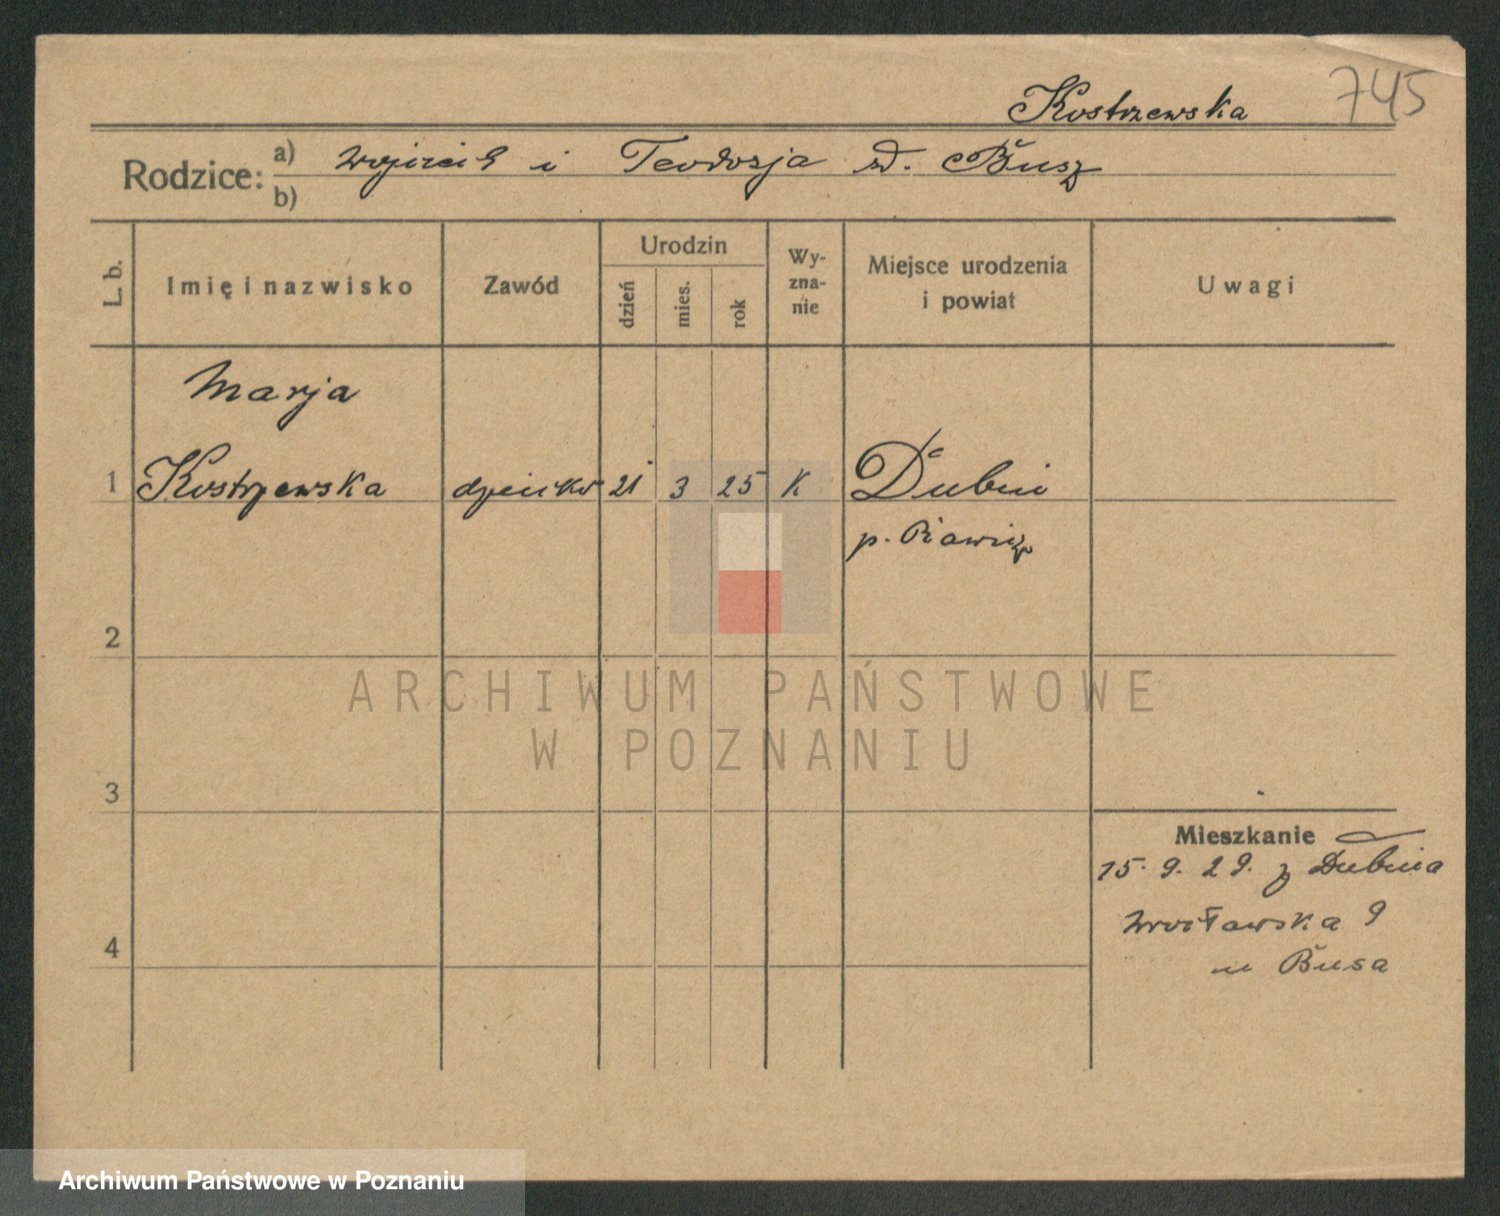 745
Kostrzewska
Rodzice: a) Wojciech i Teodozja zd. Busz
b)
L. b. Imię i nazwisko Zawód Urodzin dzień mies. rok Wy-zna-nie Miejsce urodzenia i powiat Uwagi
Marja
1 Kostrzewska dziecko 21 3 25 K Dubin
p. Rawicz
2
ARCHIWUM PAŃSTWOWE
W POZNANIU
3
Mieszkanie
15. 9. 29. z Dubina
Wrocławska 9
4
u Busa
Archiwum Państwowe w Poznaniu